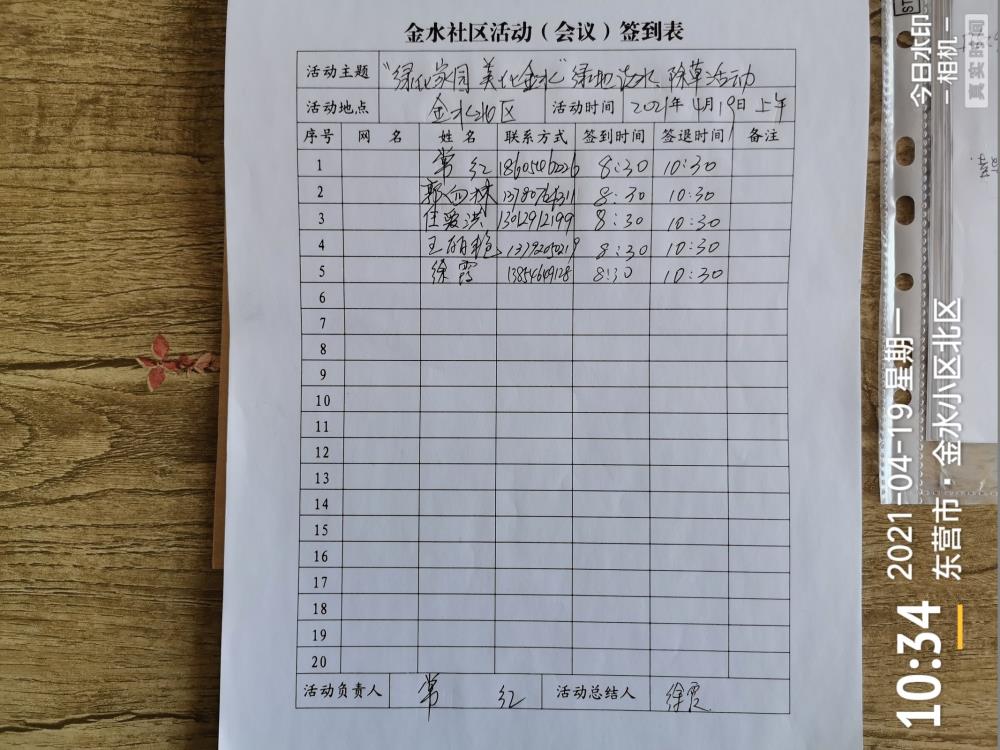 金水社区活动（会议）签到表
活动主题 “绿化家园 美化金水”绿地浇水、除草活动
活动地点 金水北区 活动时间 2021年4月19日上午
序号 网名 姓名 联系方式 签到时间 签退时间 备注
1 常红 8:30 10:30
2 8:30 10:30
3 任爱洪 13012912199 8:30 10:30
4 8:30 10:30
5 徐霞 8:30 10:30
6
7
8
9
10
11
12
13
14
15
16
17
18
19
20
活动负责人 常红 活动总结人 徐霞
今日水印
-相机-
真实时间
10:34
2021-04-19 星期一
东营市·金水小区北区